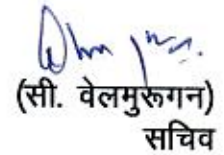 (सी. वेलमुरूगन)
सचिव